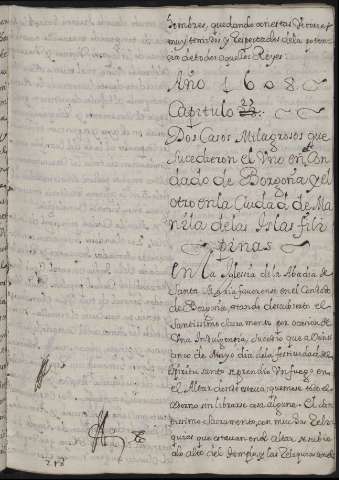 hombres, quedando con estas Victorias
muy temidos y respectados de la poten
cia de todos aquellos Reyes.
Año 1608.
Capitulo 23.
Dos Casos Milagrosos que
sucedieron el Vno en Con
dado de Borgoña, y el
otro en la Ciudad de Ma
nila de las Islas fili
pinas
En la Iglesia de la Abadia de
Santa Maria favorense en el Condado
de Borgoña, estando descubierto el
santissimo sacramento por ocasion de
Vna Indulgencia, sucedio que a Veinte
cinco de Mayo dia de la festividad del
Espiritu santo se prendio Vn fuego en
el Altar donde estava, quemose todo el
Adorno sin librarse cosa alguna. El San
tissimo sacramento, con muchas Reli
quias que estavan en el altar se subio
a lo alto del Templo, y las Reliquias